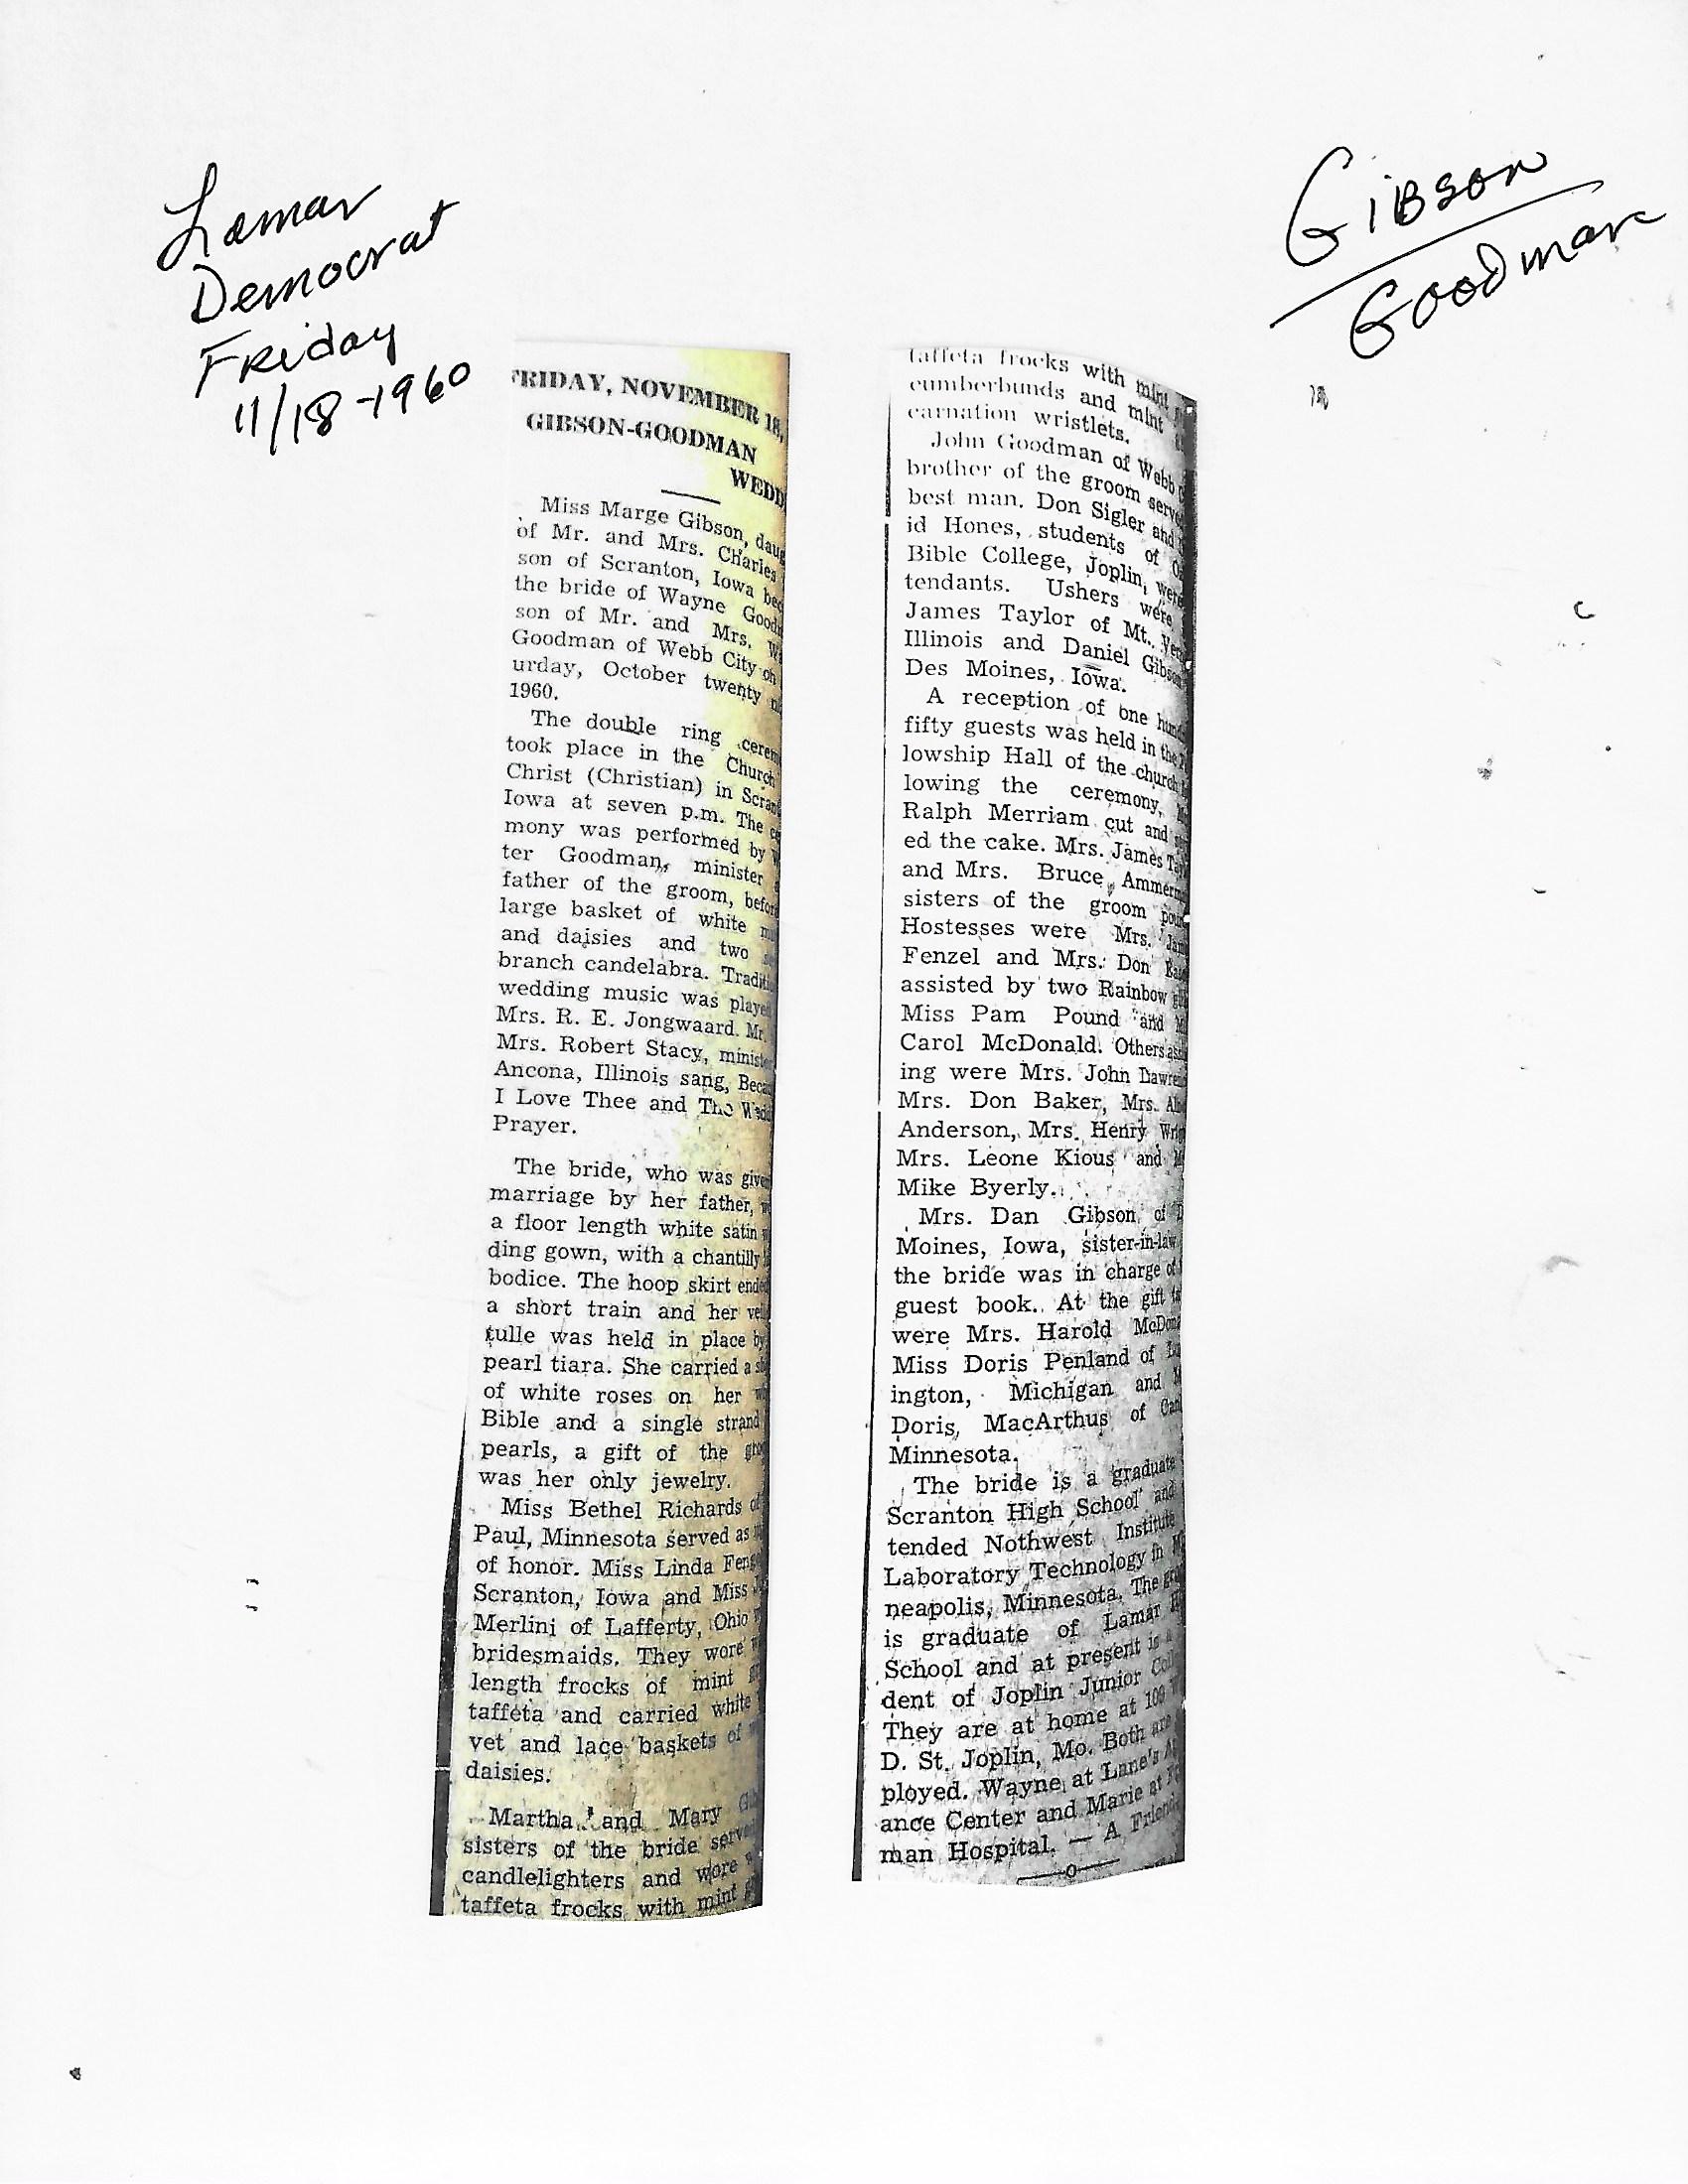 Lamar
Democrat
Friday
11/18-1960
Gibson
Goodman
FRIDAY, NOVEMBER 18,
GIBSON-GOODMAN
WEDD
Miss Marge Gibson, daug
of Mr. and Mrs. Charles
son of Scranton, Iowa bec
the bride of Wayne Goodm
son of Mr. and Mrs. Wa
Goodman of Webb City on
urday, October twenty ni
1960.
The double ring cerem
took place in the Church
Christ (Christian) in Scran
Iowa at seven p.m. The ce
mony was performed by W
ter Goodman, minister
father of the groom, befor
large basket of white mu
and daisies and two se
branch candelabra. Traditi
wedding music was played
Mrs. R. E. Jongwaard. Mr.
Mrs. Robert Stacy, minist
Ancona, Illinois sang, Beca
I Love Thee and The Wedd
Prayer.
The bride, who was give
marriage by her father, w
a floor length white satin w
ding gown, with a chantilly
bodice. The hoop skirt ende
a short train and her vei
tulle was held in place by
pearl tiara. She carried a s
of white roses on her w
Bible and a single strand
pearls, a gift of the gro
was her only jewelry.
Miss Bethel Richards of
Paul, Minnesota served as
of honor. Miss Linda Fenz
Scranton, Iowa and Miss J
Merlini of Lafferty, Ohio
bridesmaids. They wore
length frocks of mint gr
taffeta and carried white
vet and lace baskets of
daisies.
Martha and Mary Gib
sisters of the bride serve
candlelighters and wore w
taffeta frocks with mint g
taffeta frocks with mint
cumberbunds and mint
carnation wristlets.
John Goodman of Webb C
brother of the groom serve
best man. Don Sigler and
id Hones, students of Oz
Bible College, Joplin, were
tendants. Ushers were
James Taylor of Mt. Ver
Illinois and Daniel Gibson
Des Moines, Iowa.
A reception of one hund
fifty guests was held in the F
lowship Hall of the church
lowing the ceremony, M
Ralph Merriam cut and
ed the cake. Mrs. James Tay
and Mrs. Bruce Ammerm
sisters of the groom pour
Hostesses were Mrs. Jam
Fenzel and Mrs. Don
assisted by two Rainbow gi
Miss Pam Pound and M
Carol McDonald. Others ass
ing were Mrs. John Dawre
Mrs. Don Baker, Mrs. Al
Anderson, Mrs. Henry Wri
Mrs. Leone Kious and M
Mike Byerly.
Mrs. Dan Gibson of D
Moines, Iowa, sister-in-law
the bride was in charge of
guest book. At the gift ta
were Mrs. Harold McDon
Miss Doris Penland of L
ington, Michigan and
Doris, MacArthus of Can
Minnesota.
The bride is a graduate
Scranton High School and
tended Nothwest Institute
Laboratory Technology in Mi
neapolis, Minnesota. The gro
is graduate of Lamar H
School and at present is a
dent of Joplin Junior Coll
They are at home at 109
D. St. Joplin, Mo. Both are
ployed. Wayne at Lane's A
ance Center and Marie at F
man Hospital. — A Friend